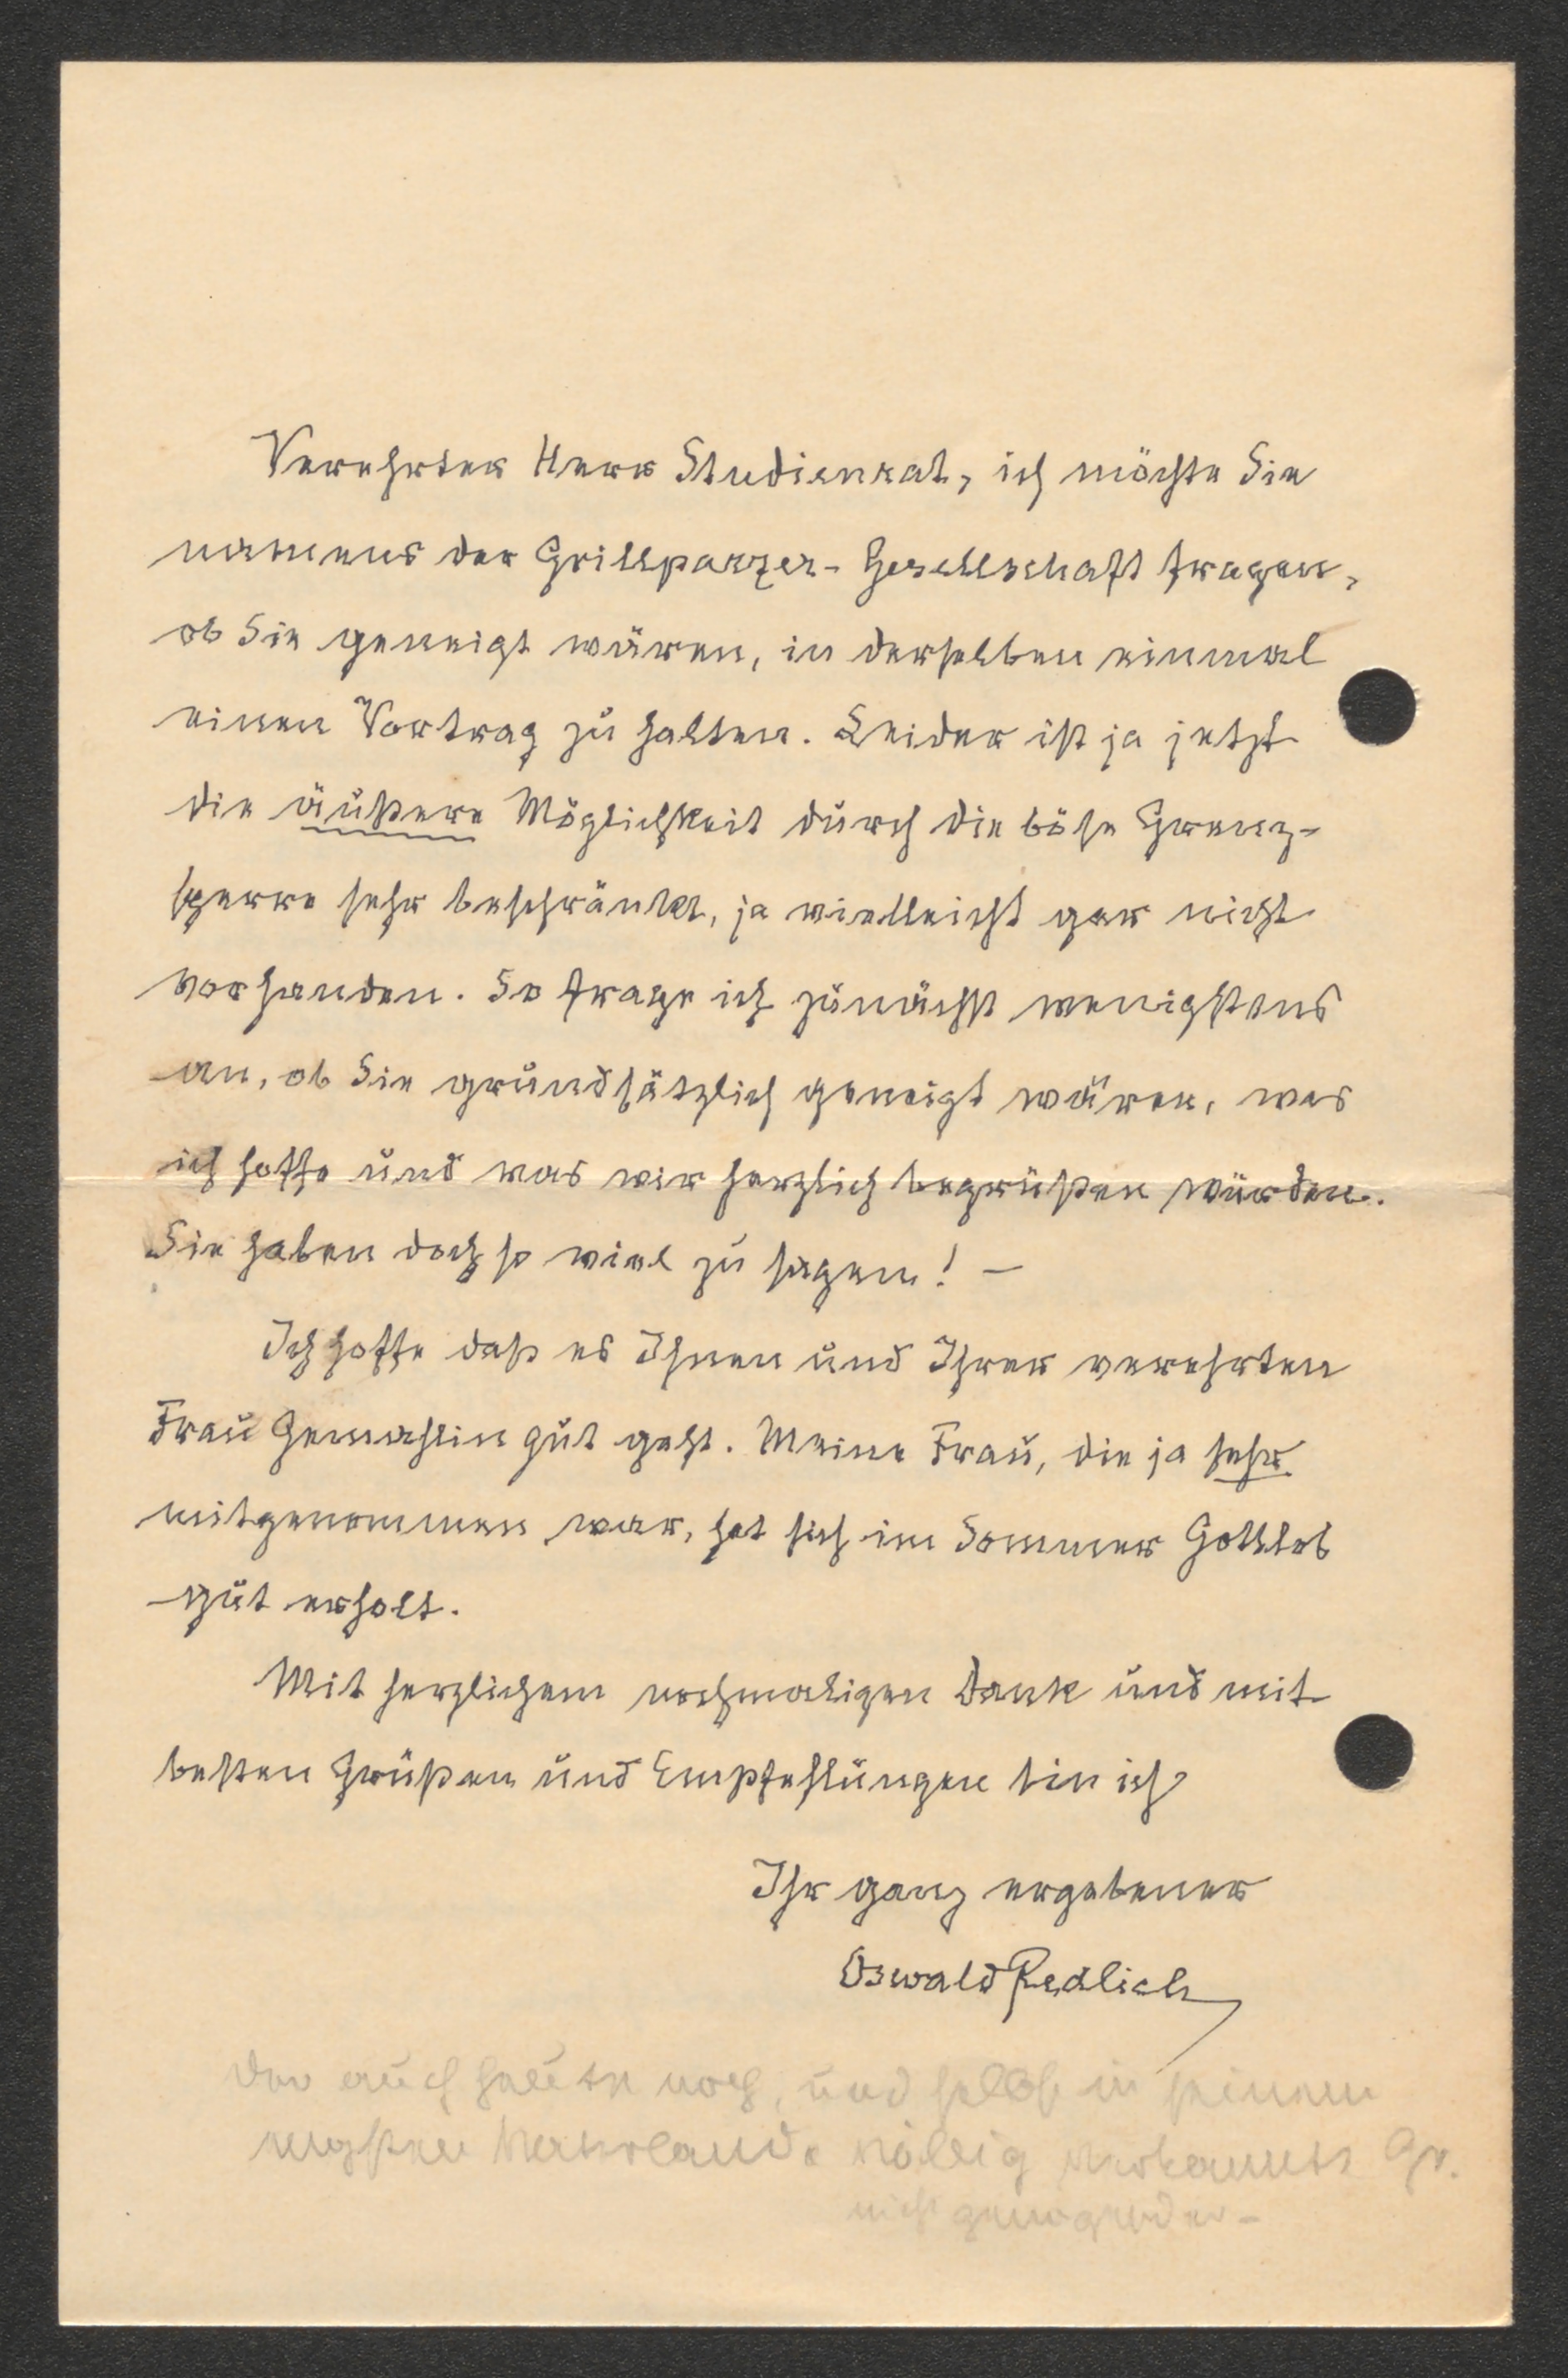 Verehrter Herr Studienrat, ich möchte Sie
namens der Grillparzer-Gesellschaft fragen,
ob Sie geneigt wären, in derselben einmal
einen Vortrag zu halten. Leider ist ja jetzt
die äußere Möglichkeit durch die böse Grenz-
sperre sehr beschränkt, ja vielleicht gar nicht
vorhanden. So frage ich zunächst wenigstens
an, ob Sie grundsätzlich geneigt wären, was
ich hoffe und was wir herzlich begrüßen würden.
Sie haben doch so viel zu sagen! –
Ich hoffe daß es Ihnen und Ihrer verehrten
Frau Gemahlin gut geht. Meine Frau, die ja sehr
mitgenommen war, hat sich im Sommer Gottlob
gut erholt.
Mit herzlichem nochmaligen Dank und mit
besten Grüßen und Empfehlungen bin ich
Ihr ganz ergebener
Oswald Redlich
der auch heute noch, und selbst in seinem
engsten Vaterlande völlig verkannte Gr.
nicht